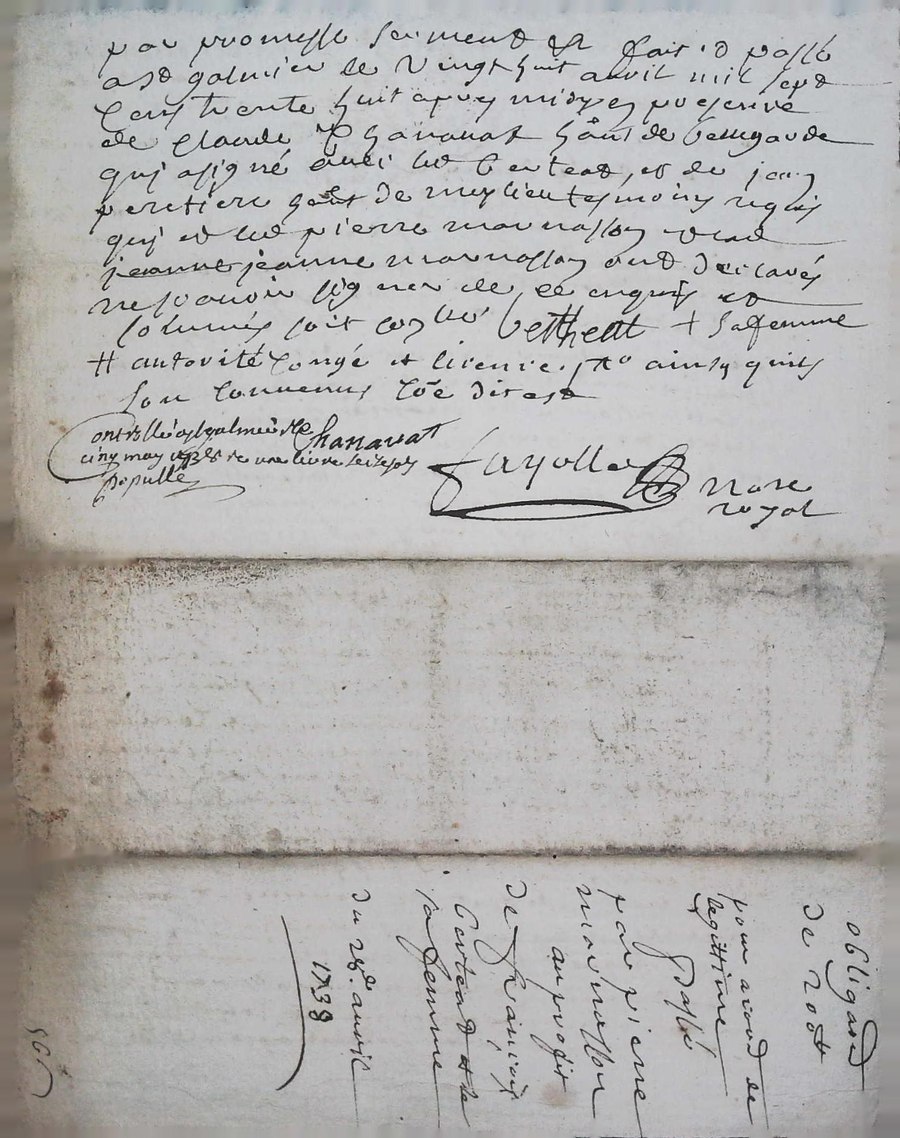 par promesse serment &c fait et passé
a St galmier le vingt huit avril mil sept
cens trente huit apres midy en presence
de Claude Chanavat hânt de bellegarde
qui a signé avec led berteat, et de jean
peretiere hant de meylieu tesmoins requis
qui et led pierre marnasson et lad
jeanne jeanne marnasson ont declarés
ne scavoir signer de ce enquis et
sommés soit con llé bertheat + sa femme
# autorité congé et licence. ainsy quils
son convenus
ontrollé a st galmier le Chanavat
cinq may 1738 re une livre seize sols
Populle
fayolle nore
royal
obligaōn
de 200 lt
pour droit de
legitime
passé
par pierre
marnasson
au profit
de françois
berteat et de
sa femme
du 28e. avril
1738